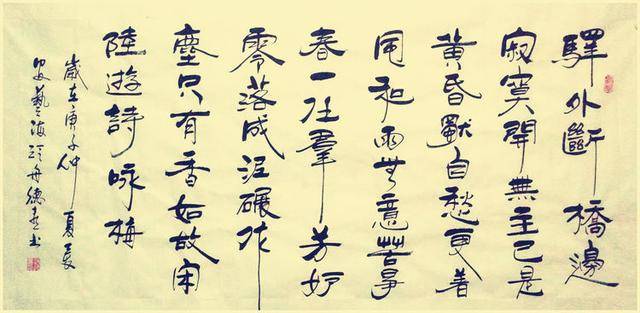 驛外斷橋邊
寂寞開無主已是
黃昏獨自愁更着
風和雨無意苦爭
春一任羣芳妒
零落成泥碾作
塵只有香如故宋
陸遊詩咏梅
歲在庚子仲夏
藝海舟德書